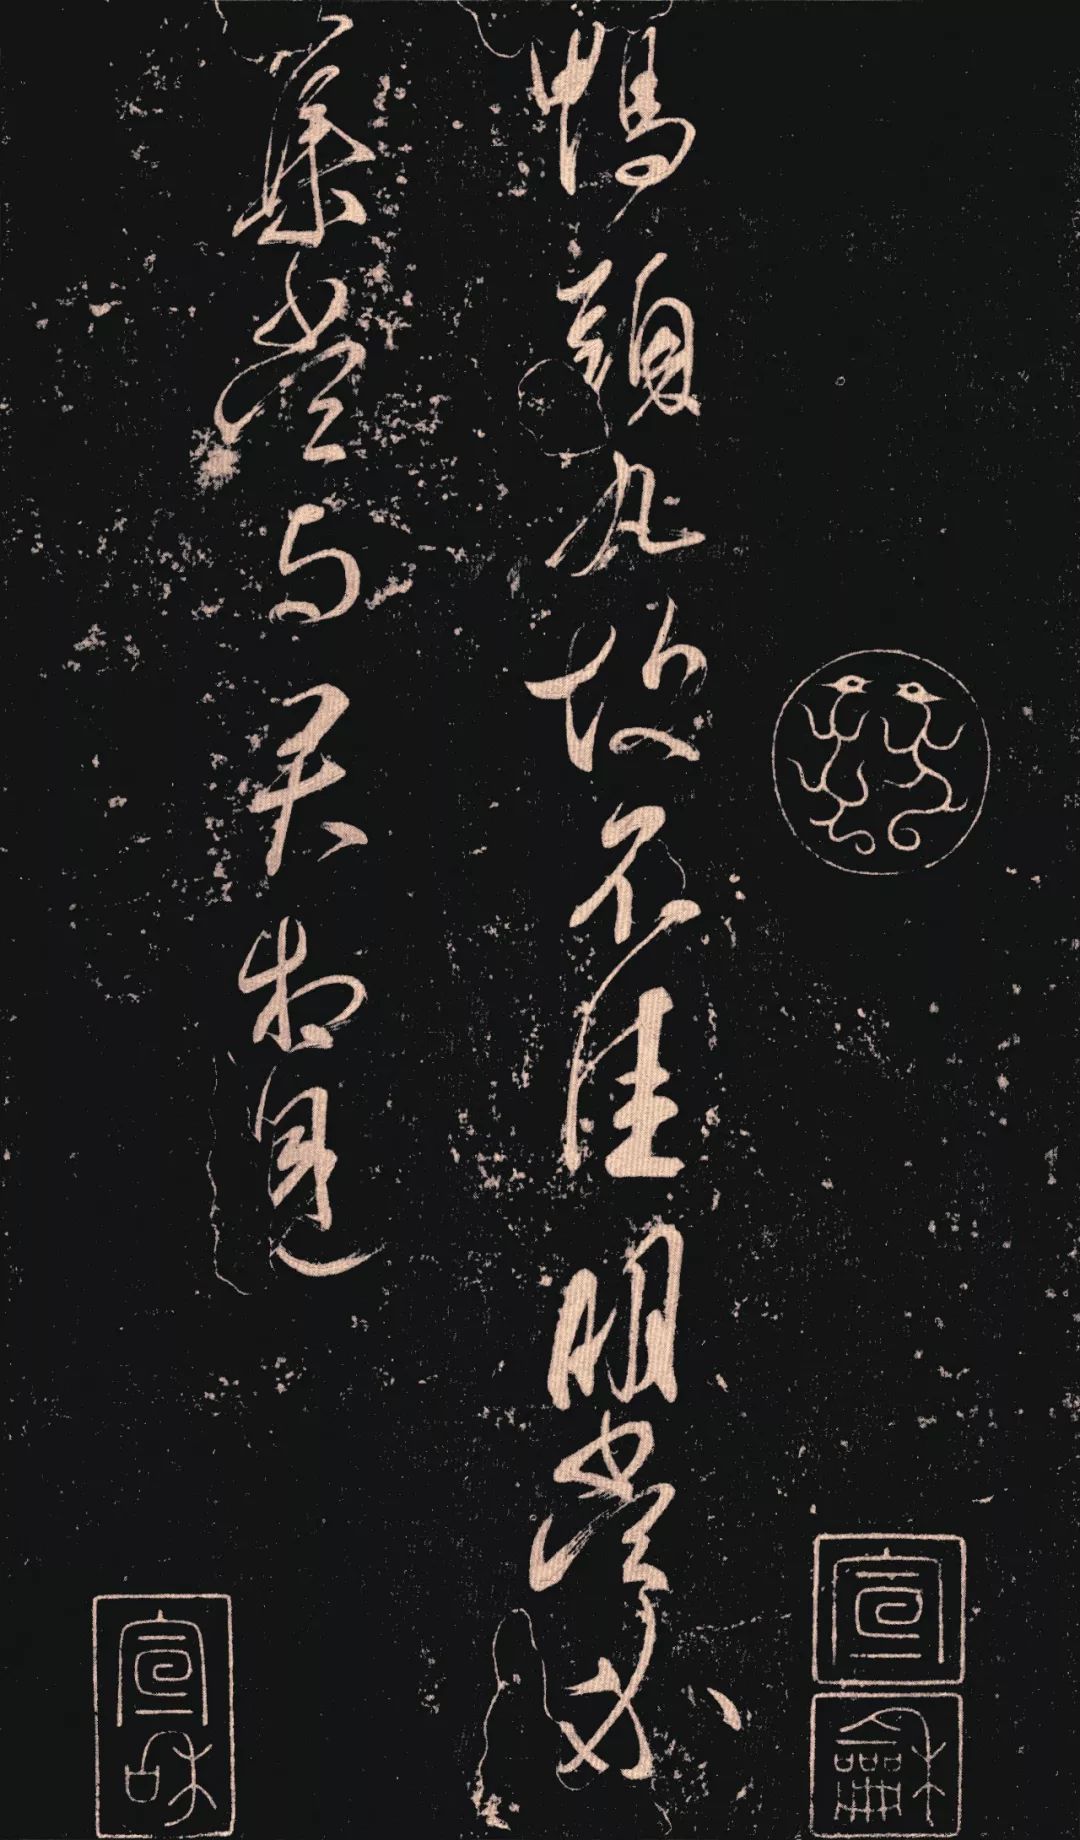 鴨頭丸故不佳明當必
集當与君相見
宣
龢
宣和